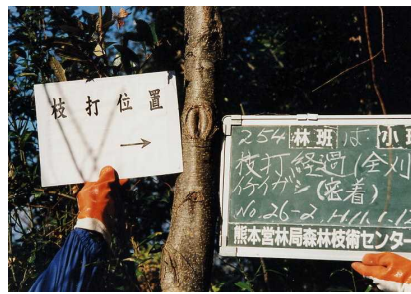 枝打位置
→
254林班は小班
枝打経過(全刈
イチイガシ(密着)
No.26-2, H.11.1.12
熊本営林局森林技術センター